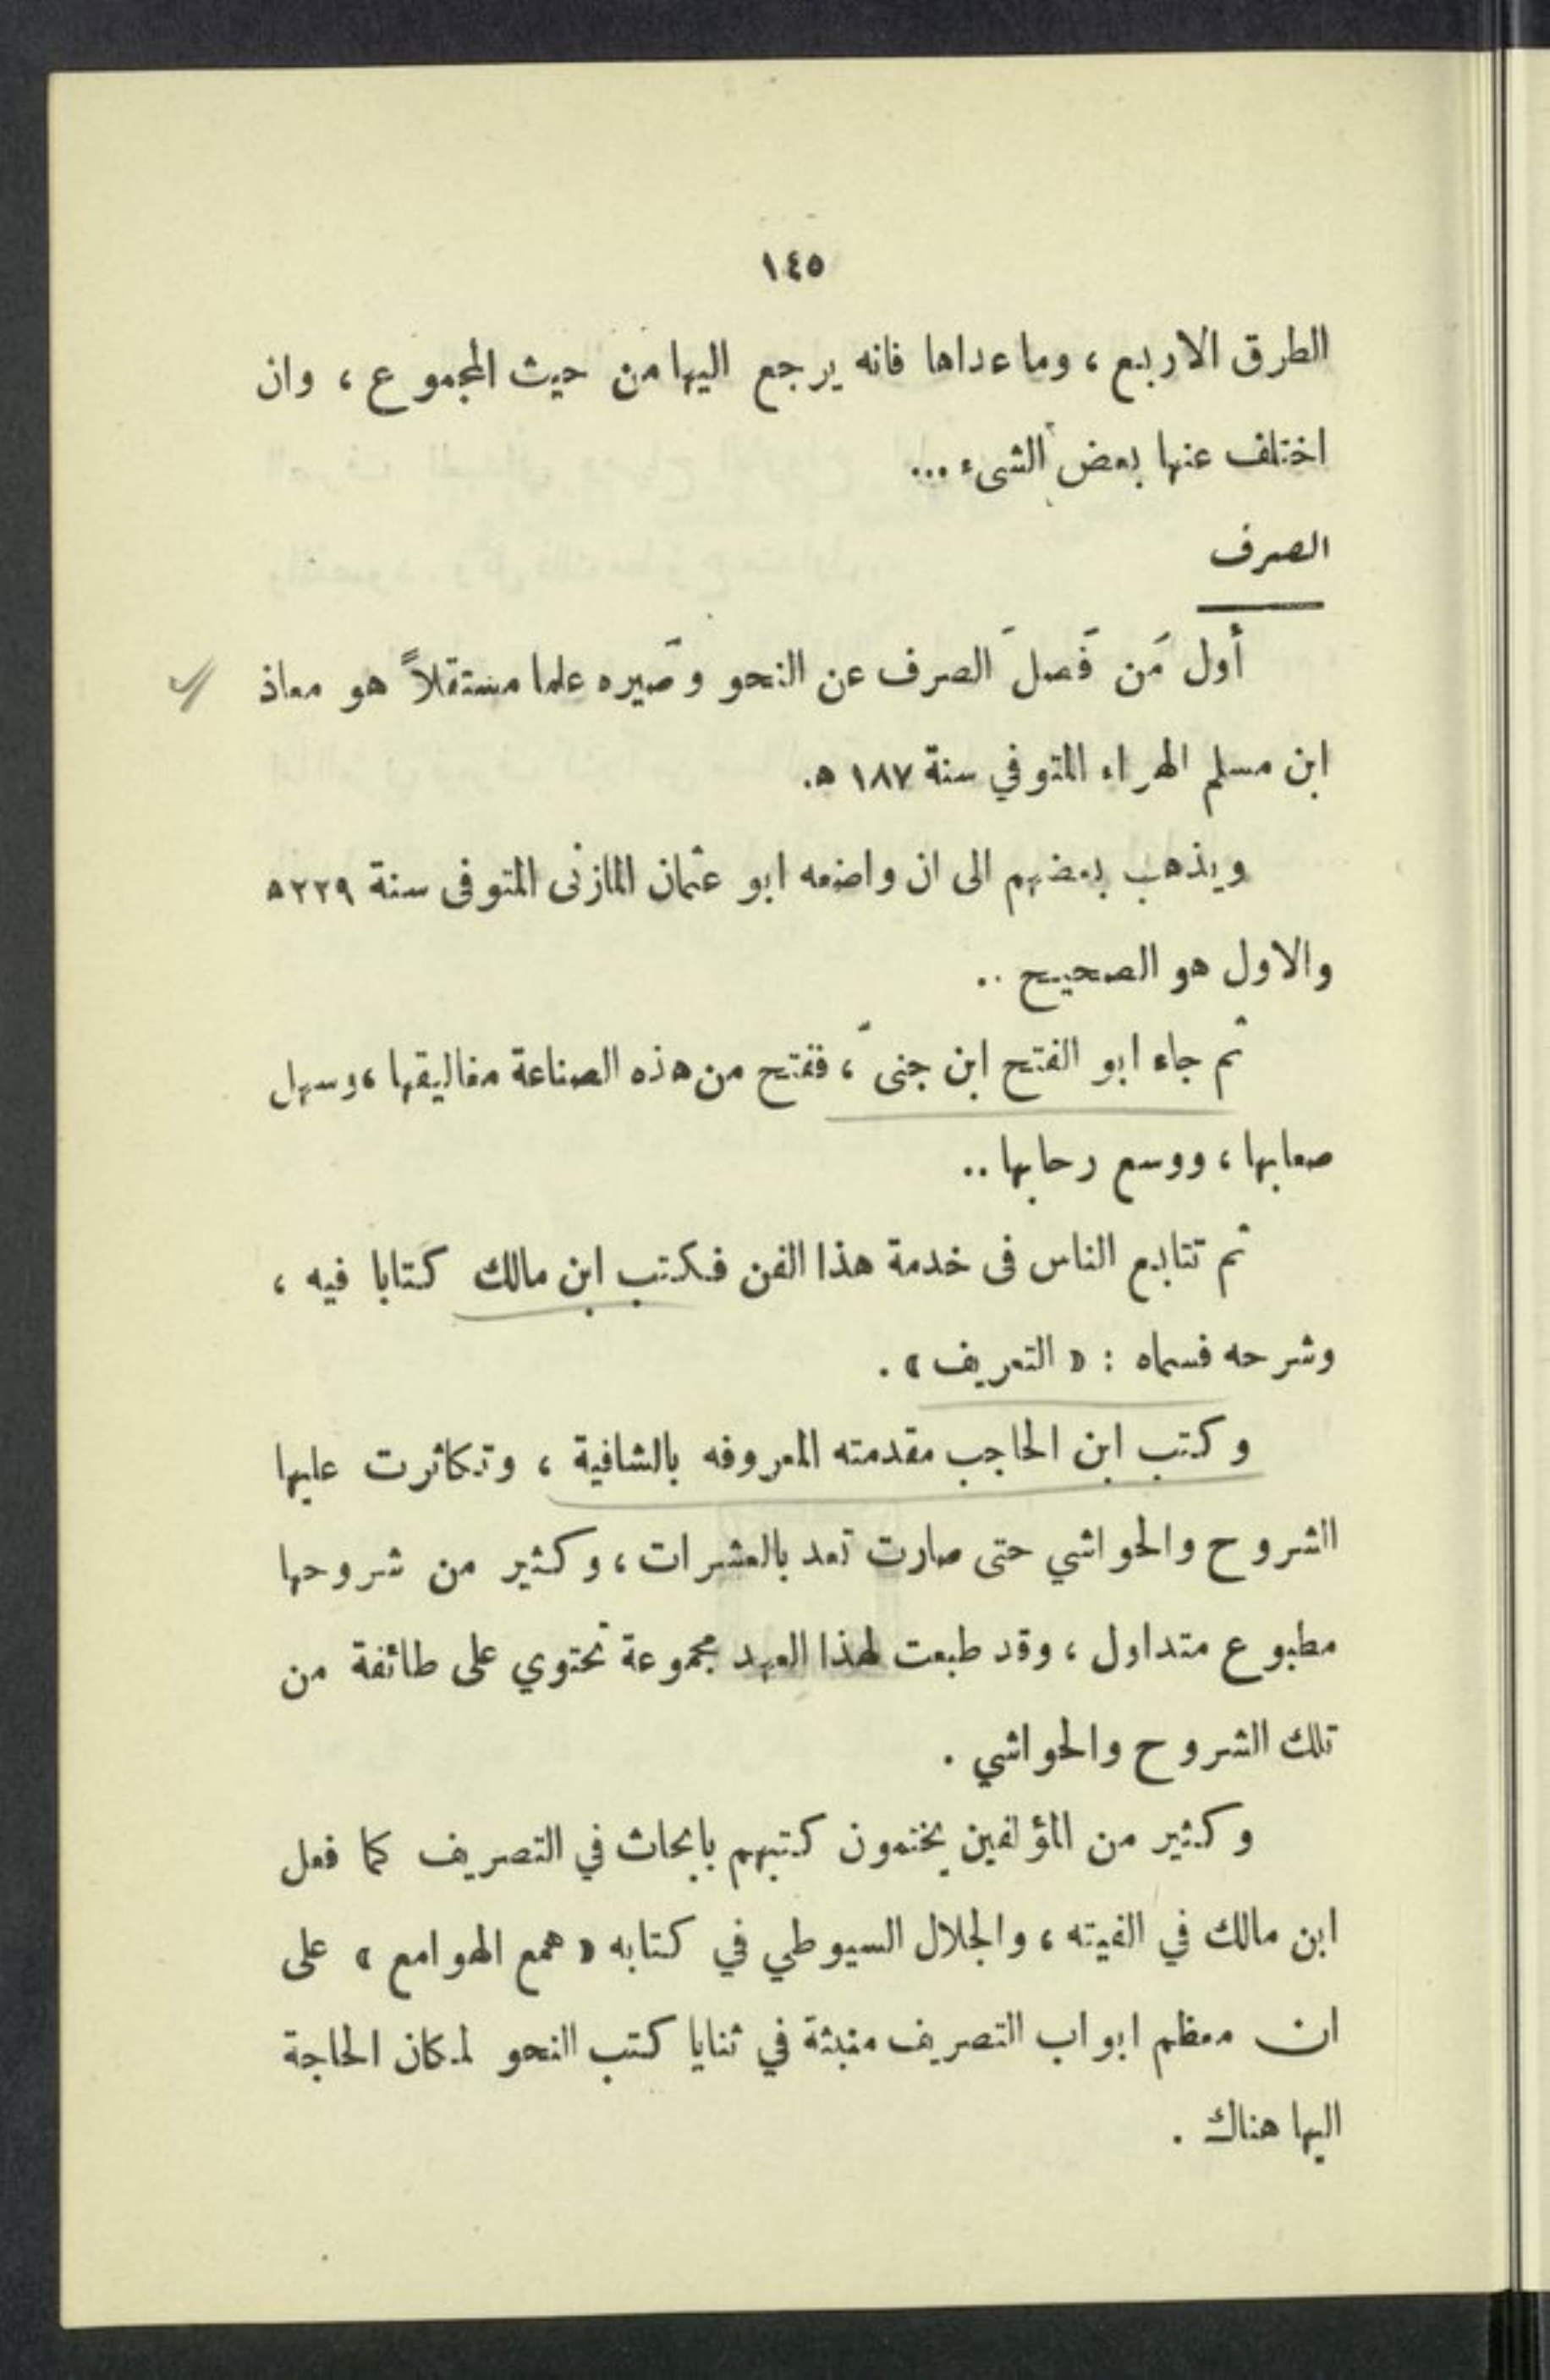 ١٤٥
الطرق الاربع ، وما عداها فانه يرجع اليها من حيث المجموع ، وان
اختلف عنها بعض الشىء ...
الصرف
أول مَن فَصلَ الصرف عن النحو وصَيره علما مستقلاً هو معاذ
ابن مسلم الهراء المتوفي سنة ١٨٧ ه.
ويذهب بعضهم الى ان واضعه ابو عثمان المازنى المتوفى سنة ٢٢٩ ه
والاول هو الصحيح ..
ثم جاء ابو الفتح ابن جنى ، ففتح من هذه الصناعة مغاليقها ، وسهل
صعابها ، ووسع رحابها ..
ثم تتابع الناس فى خدمة هذا الفن فكتب ابن مالك كتابا فيه ،
وشرحه فسماه : « التعريف » .
وكتب ابن الحاجب مقدمته المعروفه بالشافية ، وتكاثرت عليها
الشروح والحواشي حتى صارت تعد بالعشرات ، وكثير من شروحها
مطبوع متداول ، وقد طبعت لهذا العهد مجموعة تحتوي على طائفة من
تلك الشروح والحواشي .
وكثير من المؤلفين يختمون كتبهم بابحاث في التصريف كما فعل
ابن مالك في الفيته ، والجلال السيوطي في كتابه « همع الهوامع » على
ان معظم ابواب التصريف منبثة في ثنايا كتب النحو لمكان الحاجة
اليها هناك .